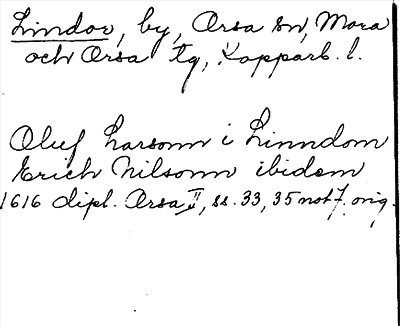 Lindor, by, Orsa sn, Mora
och Orsa tg, Kopparb. l.
Oluf Larsonn i Linndom
Erich Nilsonn ibidem
1616 dipl. Orsa II, ss. 33, 35 not 7. orig.